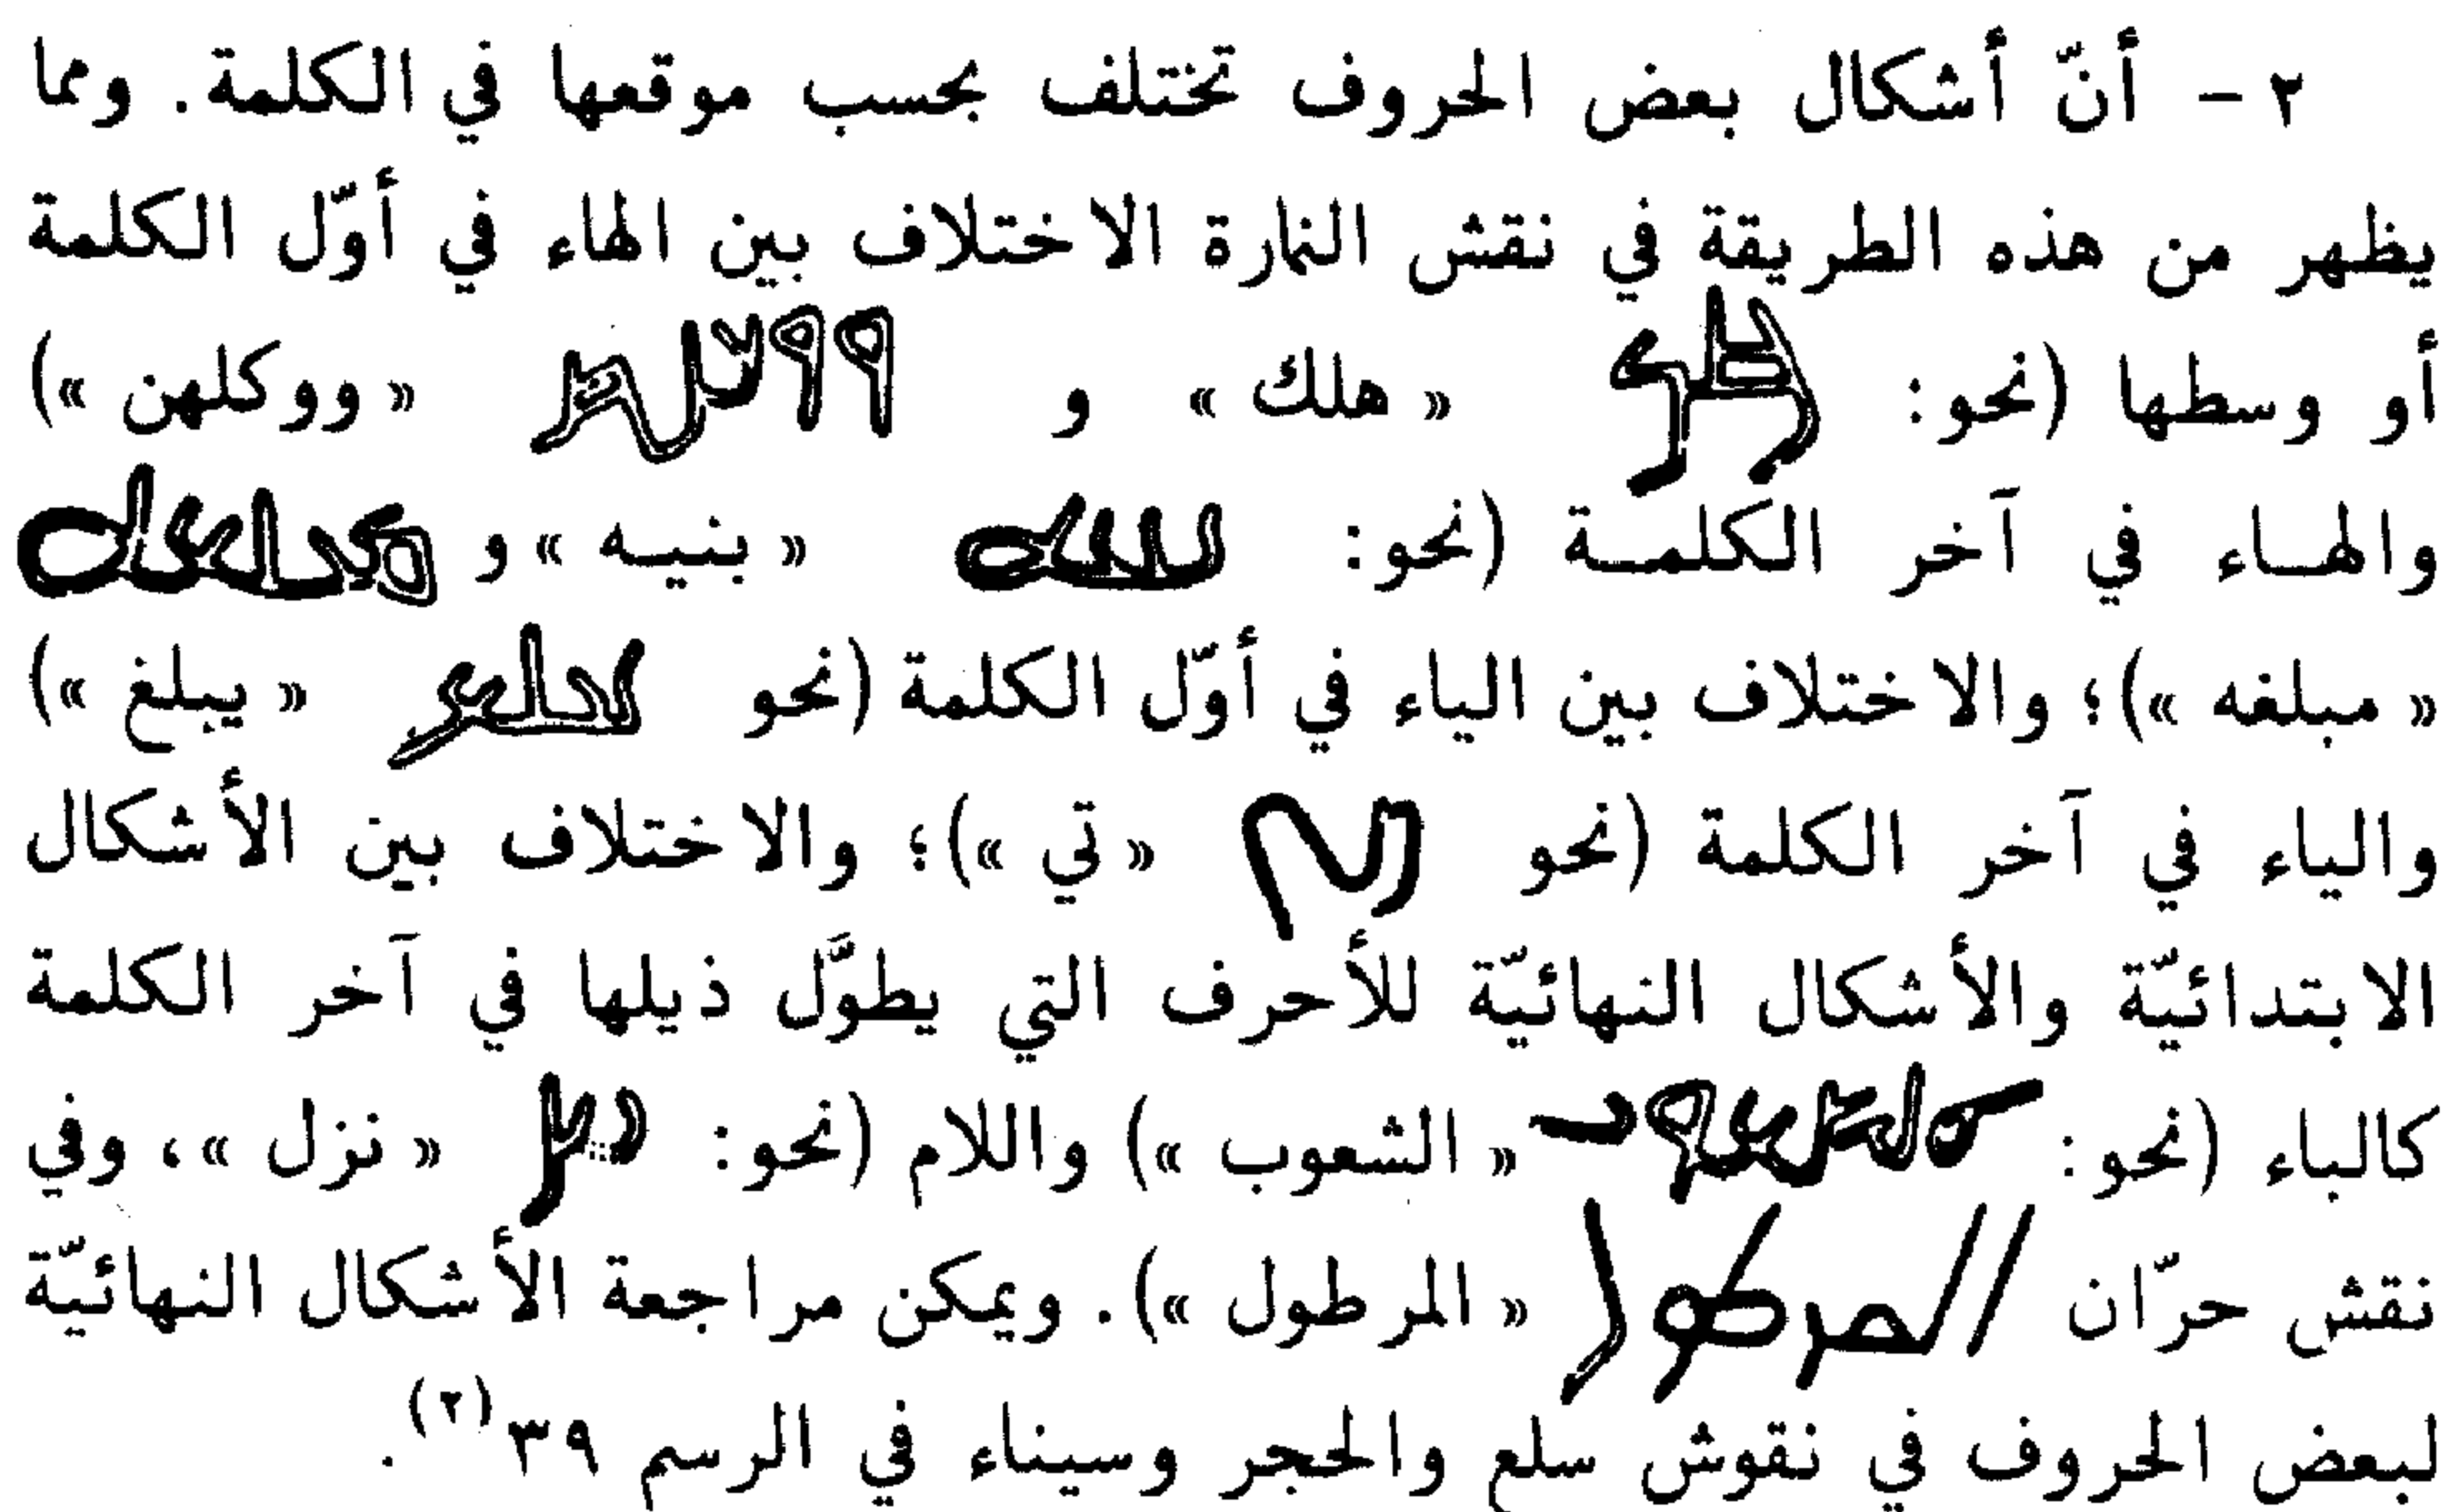 ٢ - أنّ أشكال بعض الحروف تختلف بحسب موقعها في الكلمة. ومما
يظهر من هذه الطريقة في نقش النمارة الاختلاف بين الهاء في أوّل الكلمة
أو وسطها (نحو: « هلك » و « ووكلهن »)
والهاء في آخر الكلمة (نحو: « بنيه » و
« مبلغه »)؛ والاختلاف بين الياء في أوّل الكلمة (نحو « يبلغ »)
والياء في آخر الكلمة (نحو « تي »)؛ والاختلاف بين الأشكال
الابتدائيّة والأشكال النهائيّة للأحرف التي يطوَّل ذيلها في آخر الكلمة
كالباء (نحو: « الشعوب ») واللام (نحو: « نزل »، وفي
نقش حرّان « المرطول »). ويمكن مراجعة الأشكال النهائيّة
لبعض الحروف في نقوش سلع والحجر وسيناء في الرسم ٣٩(٢).